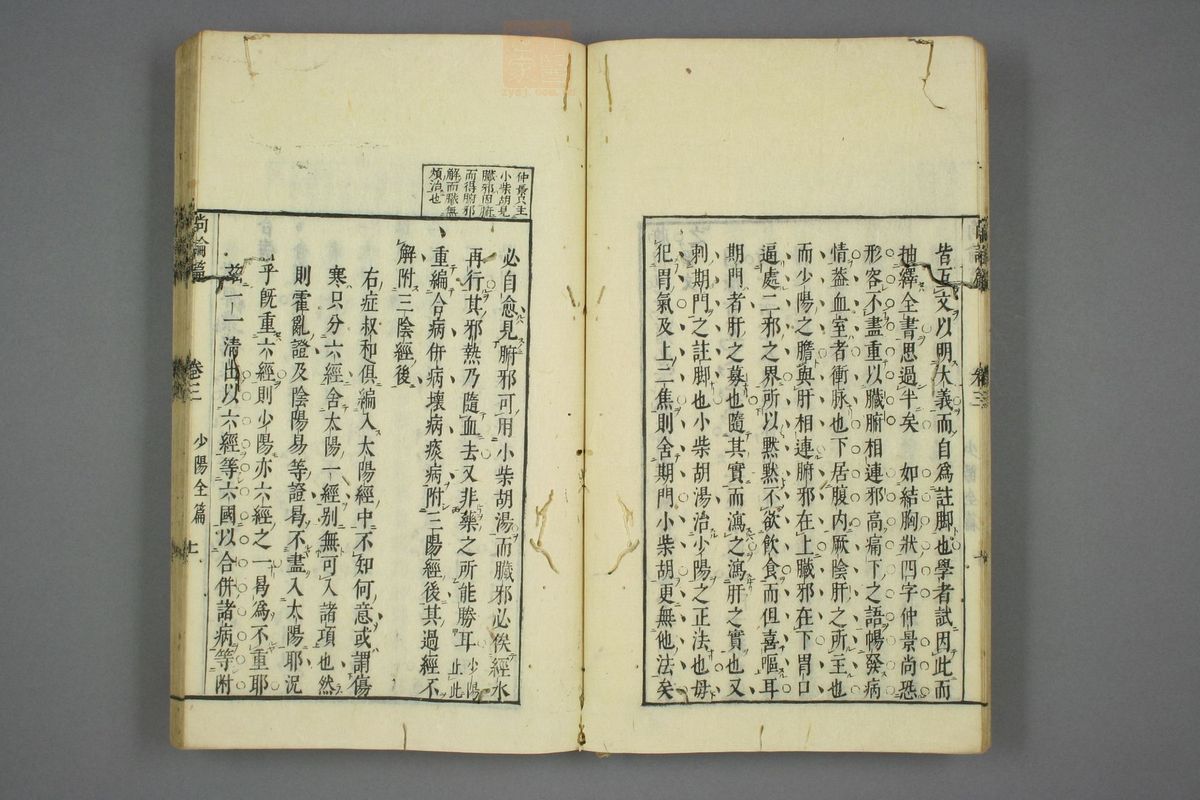 皆互文以明大義而自爲註脚也學者試因此而
紬繹全書思過半矣　如結胸狀四字仲景尚恐
形容不盡重以臓腑相連邪高痛下之語暢發病
情葢血室者衝脉也下居腹内厥陰肝之所主也
而少陽之膽與肝相連腑邪在上臓邪在下胃口
逼處二邪之界所以默默不欲飲食而但喜嘔耳
期門者肝之募也隨其實而瀉之瀉肝之實也又
刺期門之註脚也小柴胡湯治少陽之正法也毋
犯胃氣及上二焦則舍期門小柴胡更無他法矣
卷三
仲景只主
小柴胡見
臓邪因腑
而得腑邪
解而臓無
煩治也
必自愈見腑邪可用小柴胡湯而臓邪必俟經水
再行其邪熱乃隨血去又非藥之所能勝耳 少陽止此
重編合病併病壞病痰病附三陽經後其過經不
解附三陰經後
右症叔和俱編入太陽經中不知何意或謂傷
寒只分六經舍太陽一經别無可入諸項也然
則霍亂證及陰陽易等證曷不盡入太陽耶況
乎既重六經則少陽亦六經之一曷爲不重耶
茲一一清出以六經等六國以合併諸病等附
尚論篇
卷三
少陽全篇